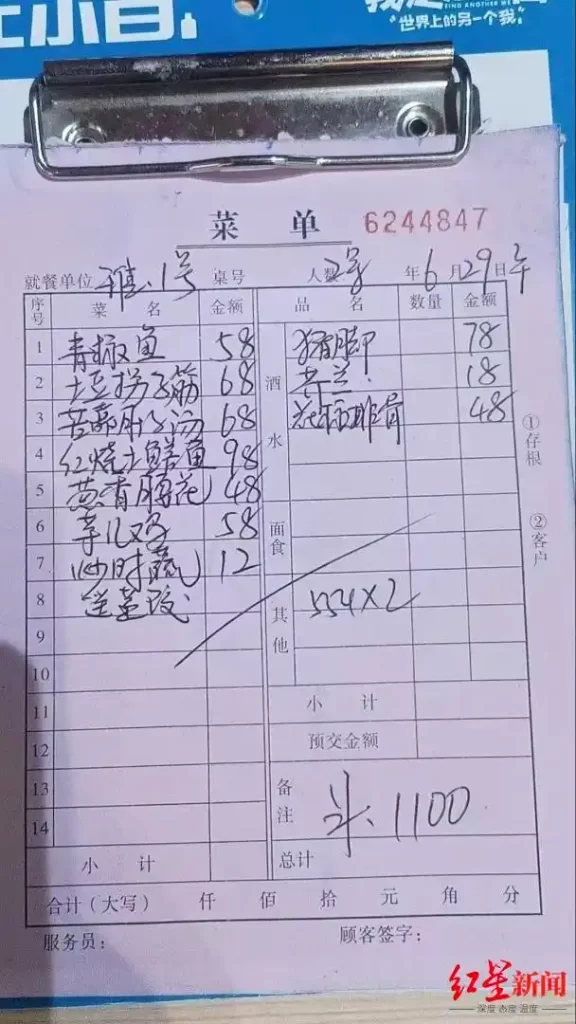 世界上的另一个我
菜 单 6244847
就餐单位 雅.1号 桌号 人数 2号 年6月29日午
序号 菜 名 金额 品 名 数量 金额
1 青椒鱼 58 酒水 猪脚 78
2 土豆拐子筋 68 18
3 68 花椒排骨 48
4 红烧土鳝鱼 98
5 葱香腰花 48
6 58 面食
7 炒时蔬 12
8 其他 554×2
9
10
11 小 计
12 预交金额
13 备注 1100
14
小 计 总计
合计(大写) 仟 佰 拾 元 角 分
服务员: 顾客签字:
①存根
②客户
红星新闻
深度 态度 温度